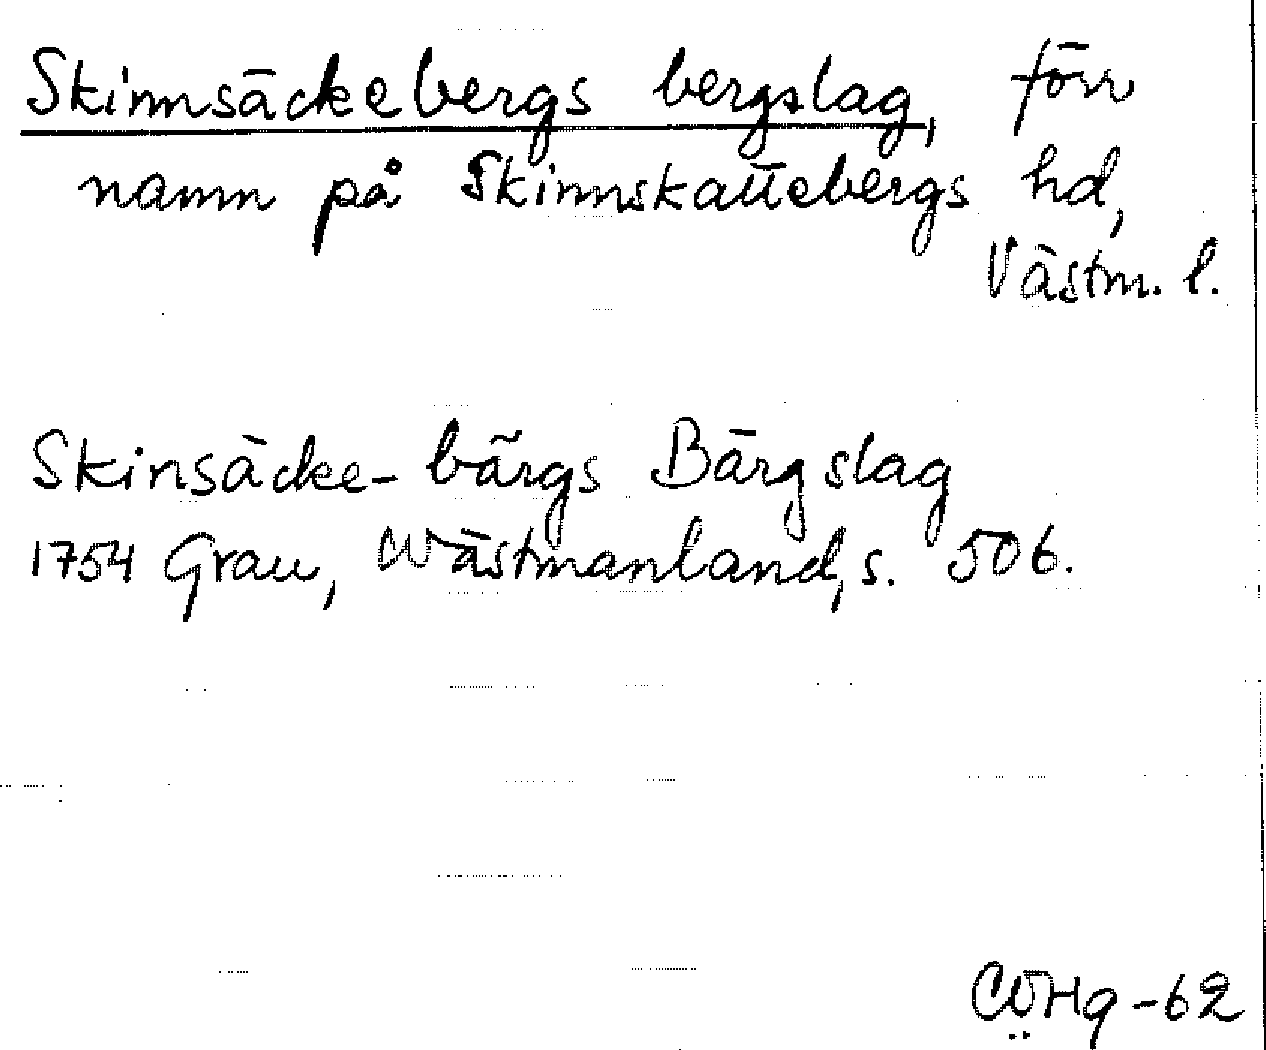 Skinnsäckebergs bergslag, förr
namn på Skinnskattebergs hd,
Västm. l.
Skinsäcke-bärgs Bärgslag
1754 Grau, Wästmanland, s. 506.
CÖHg -62